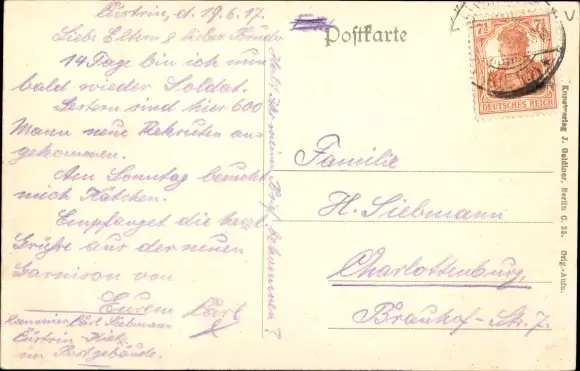 Cüstrin, d. 19.6.17.
Liebe Eltern & lieber Bruder
14 Tage bin ich nun
bald wieder Soldat.
Gestern sind hier 600
Mann neue Rekruten an-
gekommen.
Am Sonntag besucht
mich Kätchen.
Empfanget die herzl.
Grüße aus der neuen
Garnison von
Eurem Carl
Kanonier Carl Siebmann
Cüstrin-Kietz
im Postgebäude.
Habt Ihr meinen Brief bekommen?
Postkarte
7½
DEUTSCHES REICH
Familie
H. Siebmann
Charlottenburg,
Brauhof-Str. 7.
Kunstverlag J. Goldiner, Berlin C. 25. Orig.-Aufn.